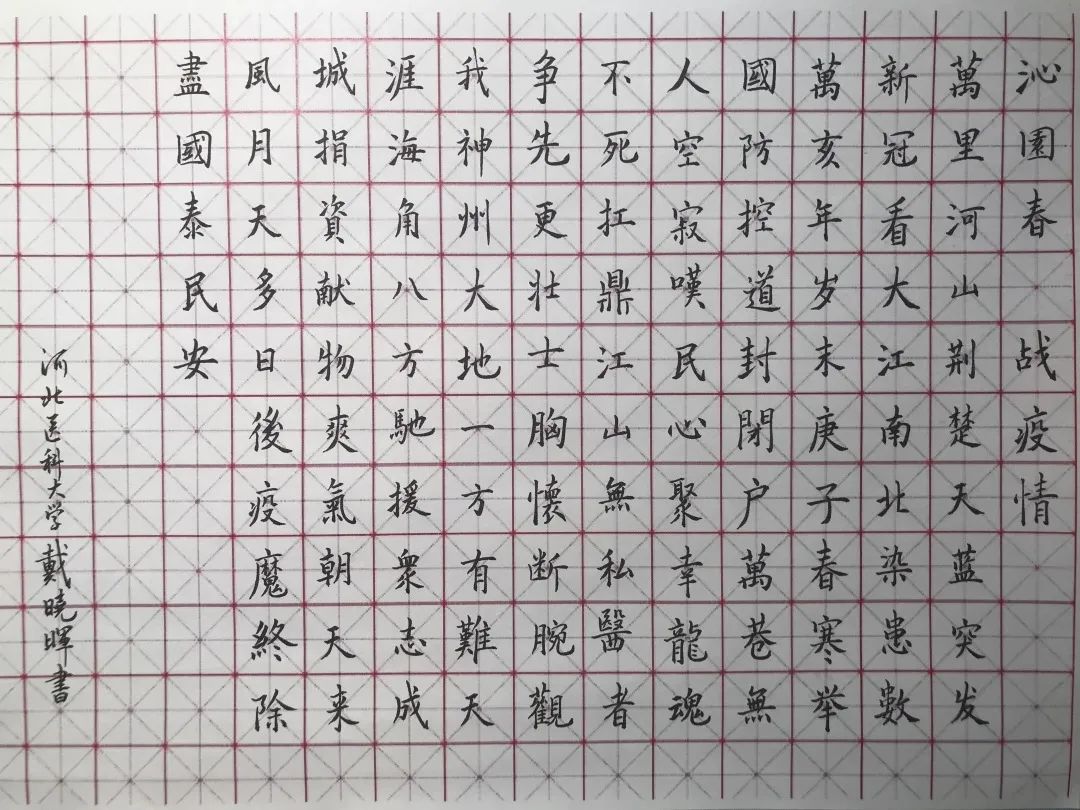 沁園春 战疫情
萬里河山荆楚天蓝突发
新冠看大江南北染患數
萬亥年岁末庚子春寒举
國防控道封閉户萬巷無
人空寂嘆民心聚幸龍魂
不死扛鼎江山無私醫者
争先更壮士胸懷断腕觀
我神州大地一方有難天
涯海角八方馳援衆志成
城捐資献物爽氣朝天来
風月天多日後疫魔終除
盡國泰民安
河北医科大学戴曉暉書